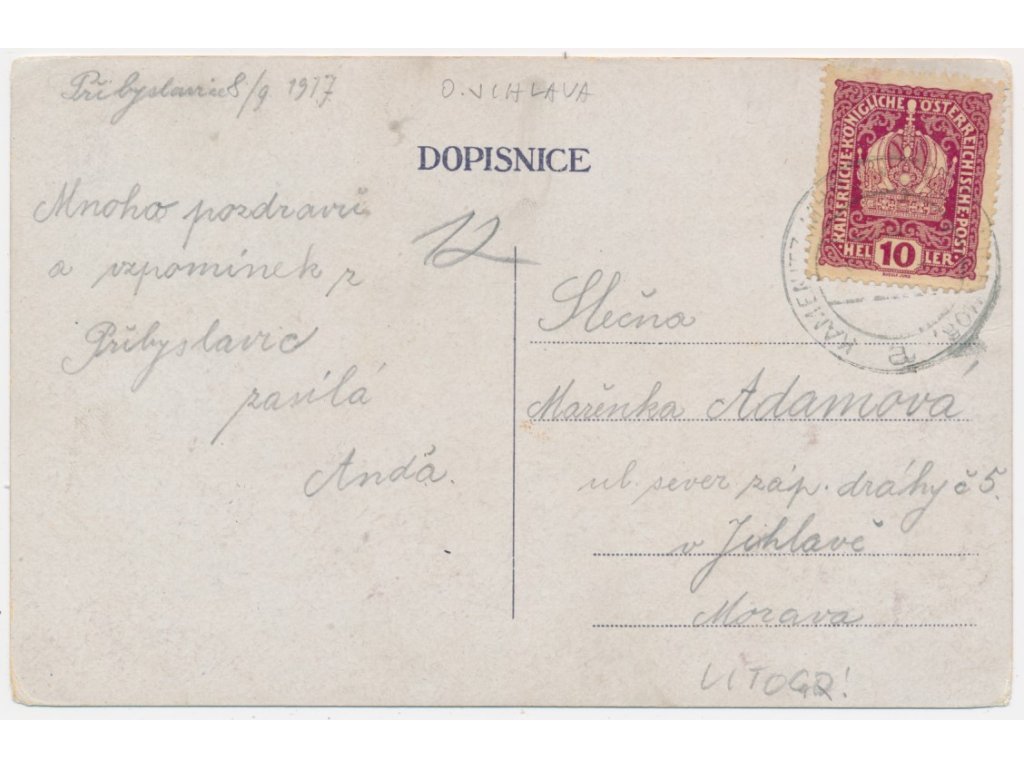 Přibyslavice 8/9 1917
O. JIHLAVA
DOPISNICE
Mnoho pozdravů
a vzpomínek z
Přibyslavic
zasílá
Anda.
12
KAISERLICHE KÖNIGLICHE ÖSTERREICHISCHE POST
HELLER
10
KAMENITZ
Slečna
Mařenka Adamová
ul. sever záp. dráhy č 5.
v Jihlavě
Morava
LITOGR!